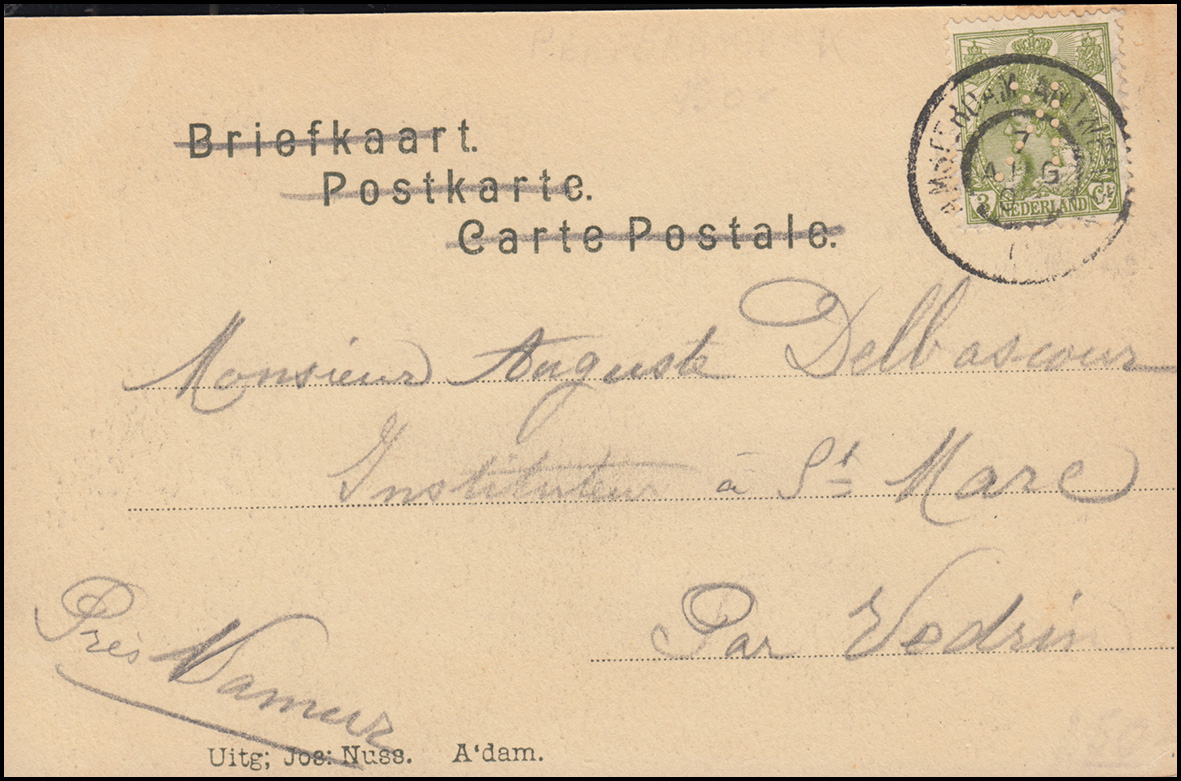 Briefkaart.
Postkarte.
Carte Postale.
AMSTERDAM
7
AUG
3 NEDERLAND Ct
Monsieur Auguste Delbascour
Instituteur à St Marc
Par Vedrin
Près Namur
Uitg; Jos: Nuss. A'dam.